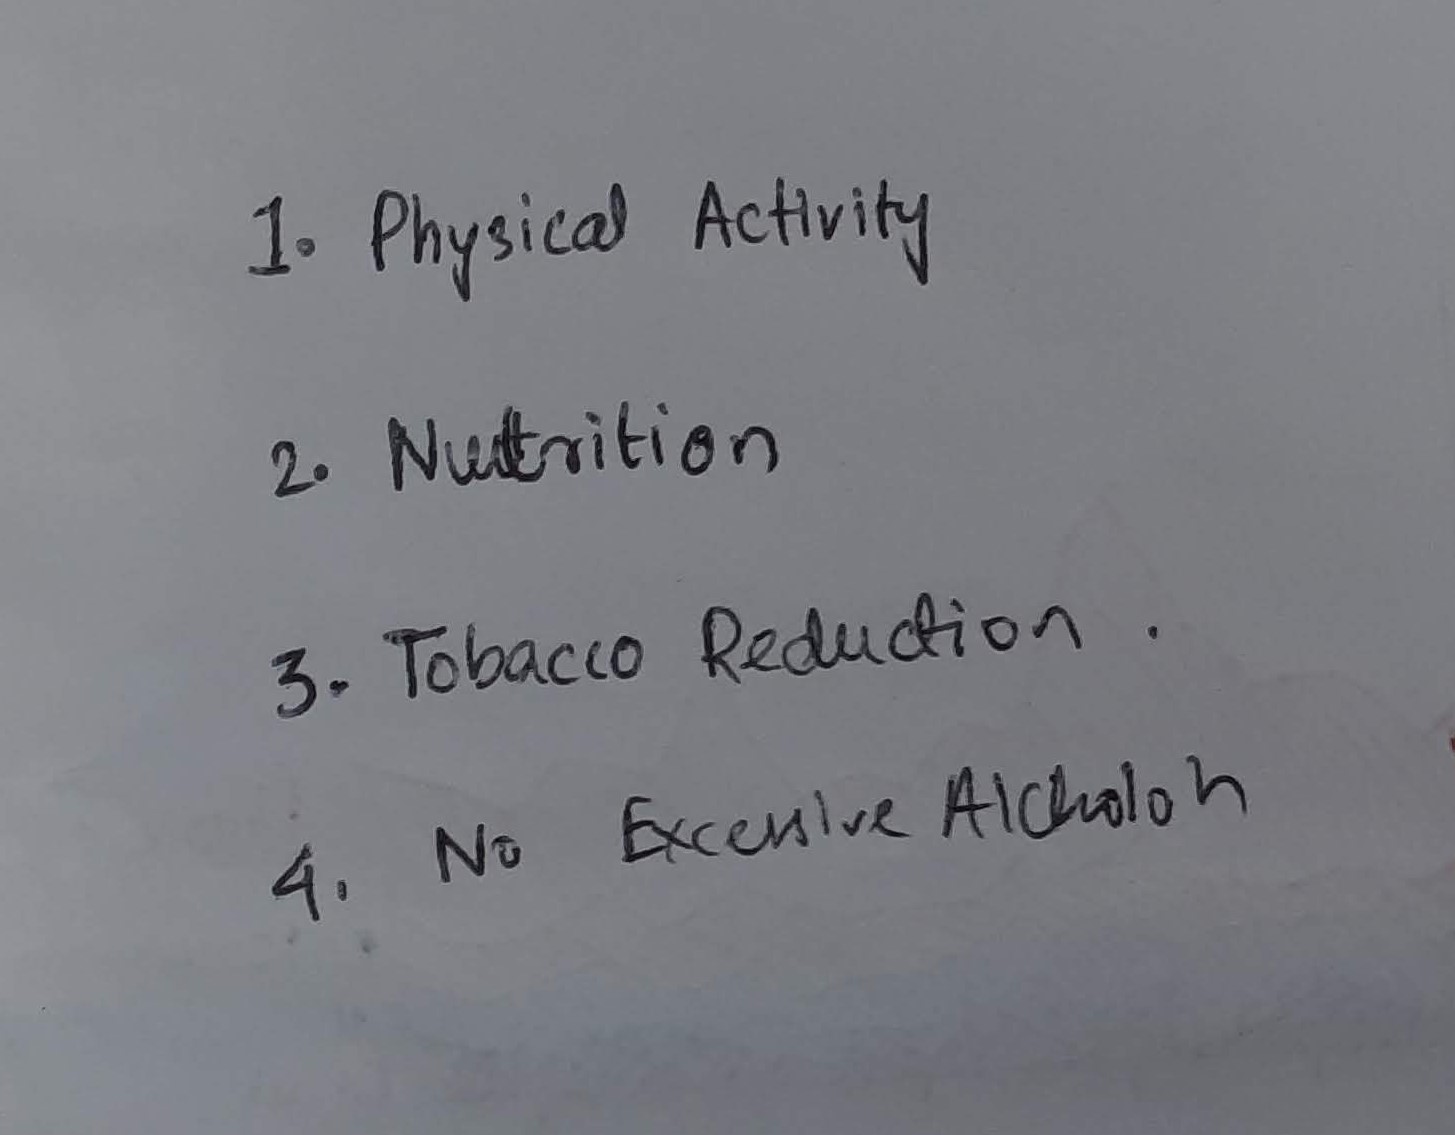 1. Physical Activity
2. Nuttrition
3. Tobacco Reduction .
4. No Excessive Alcholoh